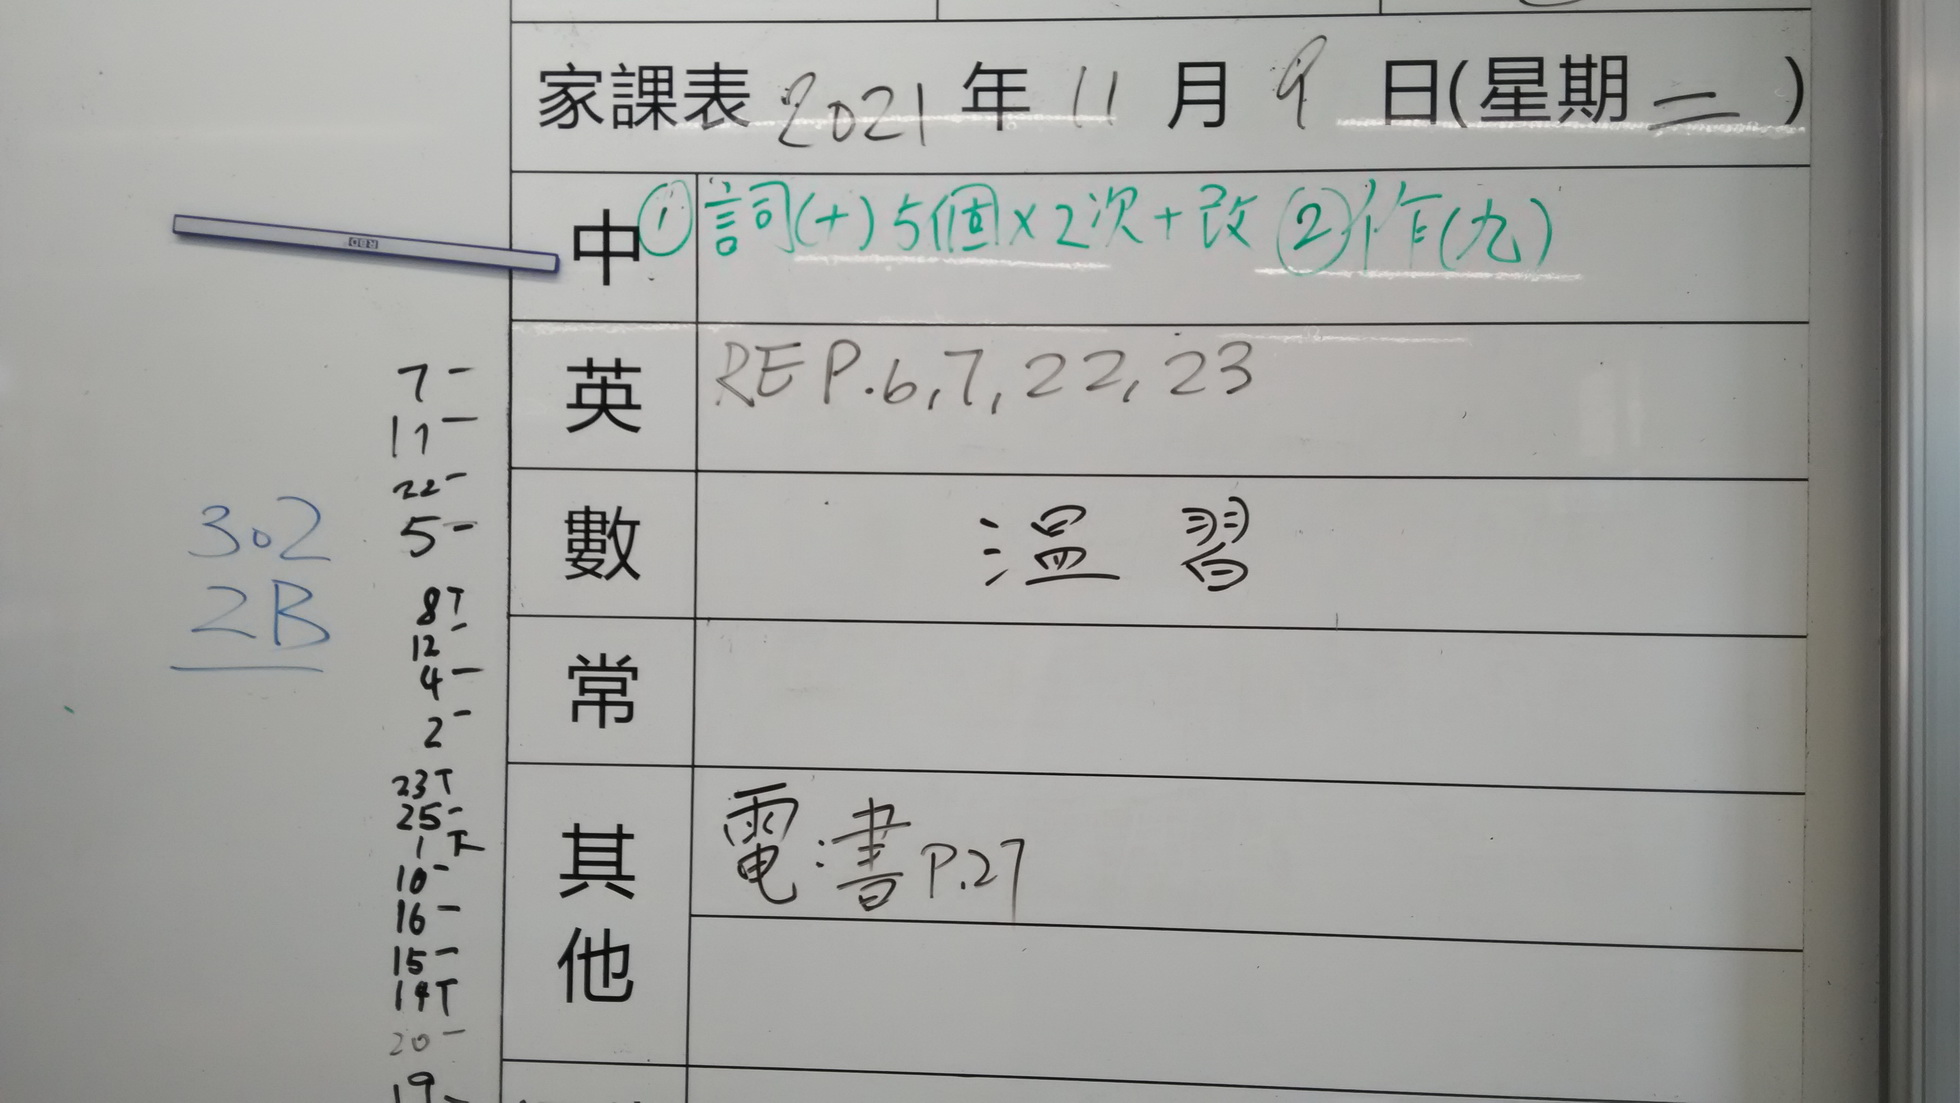 家課表 2021 年 11 月 9 日(星期二)
中 ① 詞(十)5個×2次+改 ②作(九)
英 RE P.6,7,22,23
數 溫習
常
其他 電:書 P.27
302
2B
7 一
11 一
22 一
5 一
8 T
12 一
4 一
2 一
23 T
25 一
1 下
10 一
16 一
15 一
14 T
20 一
19